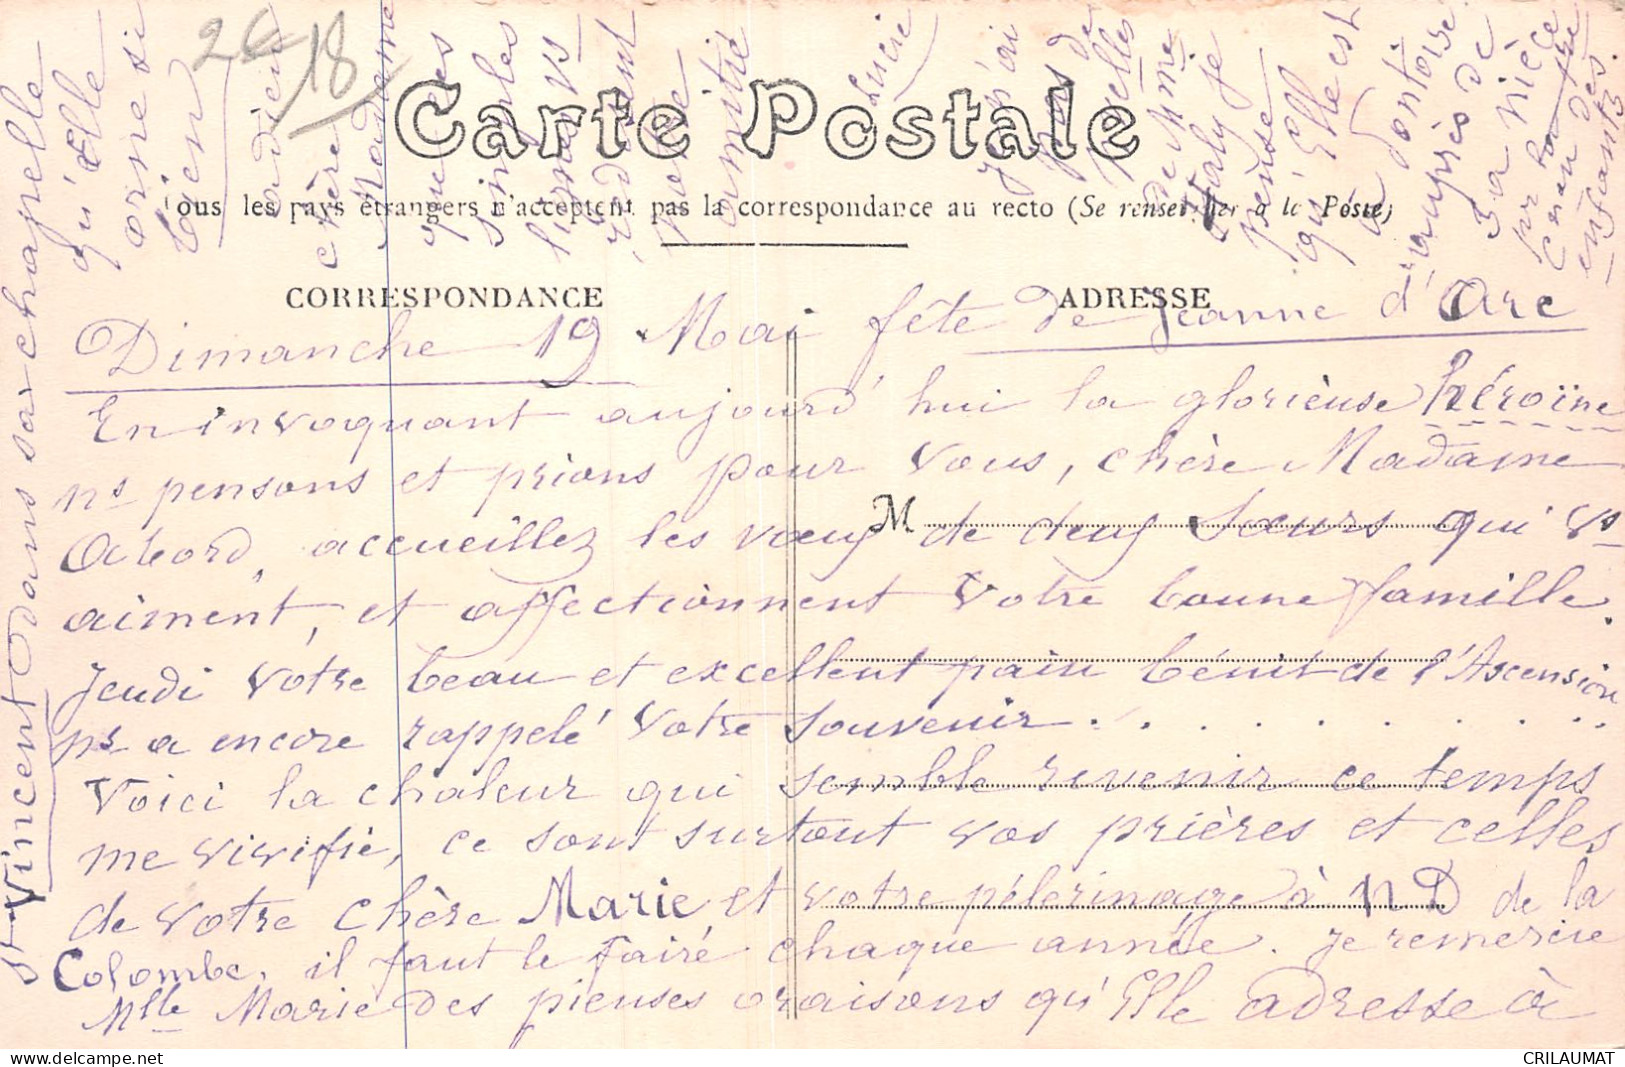 26
18
Carte Postale
Tous les pays étrangers n'acceptent pas la correspondance au recto (Se renseigner à la Poste)
CORRESPONDANCE
ADRESSE
M
Dimanche 19 Mai fête de Jeanne d'Arc
En invoquant aujourd'hui la glorieuse héroïne
ns pensons et prions pour Vous, chère Madame
Abord, accueillez les vœux de deux Sœurs qui vs
aiment, et affectionnent Votre bonne famille.
Jeudi Votre beau et excellent pain bénit de l'Ascension
ns a encore rappelé Votre Souvenir . . . . . . . . .
Voici la chaleur qui semble revenir ce temps
me vivifie, ce sont surtout vos prières et celles
de votre chère Marie et votre pélerinage à ND de la
Colombe, il faut le faire chaque année. Je remercie
Mlle Marie des pieuses oraisons qu'Elle adresse à
St Vincent dans sa chapelle
qu'Elle
orne si
bien
adieu
chère
Madame
que ces
simples
lignes vs
redisent
notre
amitié
Lucie
J'ai
pas de
nelles
de Mme
Staly je
pense
qu'Elle est
à Pontoise
auprès de
sa nièce
pr la 1re
Cion des
enfants.
CRILAUMAT